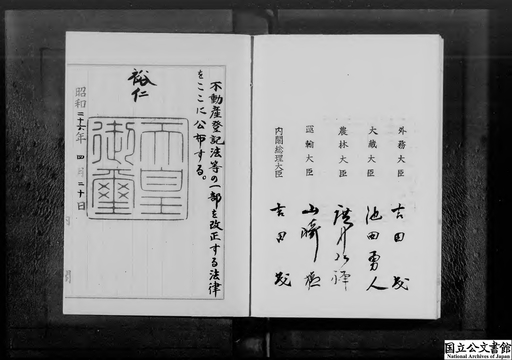 不動産登記法等の一部を改正する法律
をここに公布する。
裕仁
天皇
御璽
昭和二十六年四月二十日
外務大臣 吉田茂
大蔵大臣 池田勇人
農林大臣 廣川弘禅
運輸大臣 山崎猛
内閣総理大臣 吉田茂
国立公文書館
National Archives of Japan